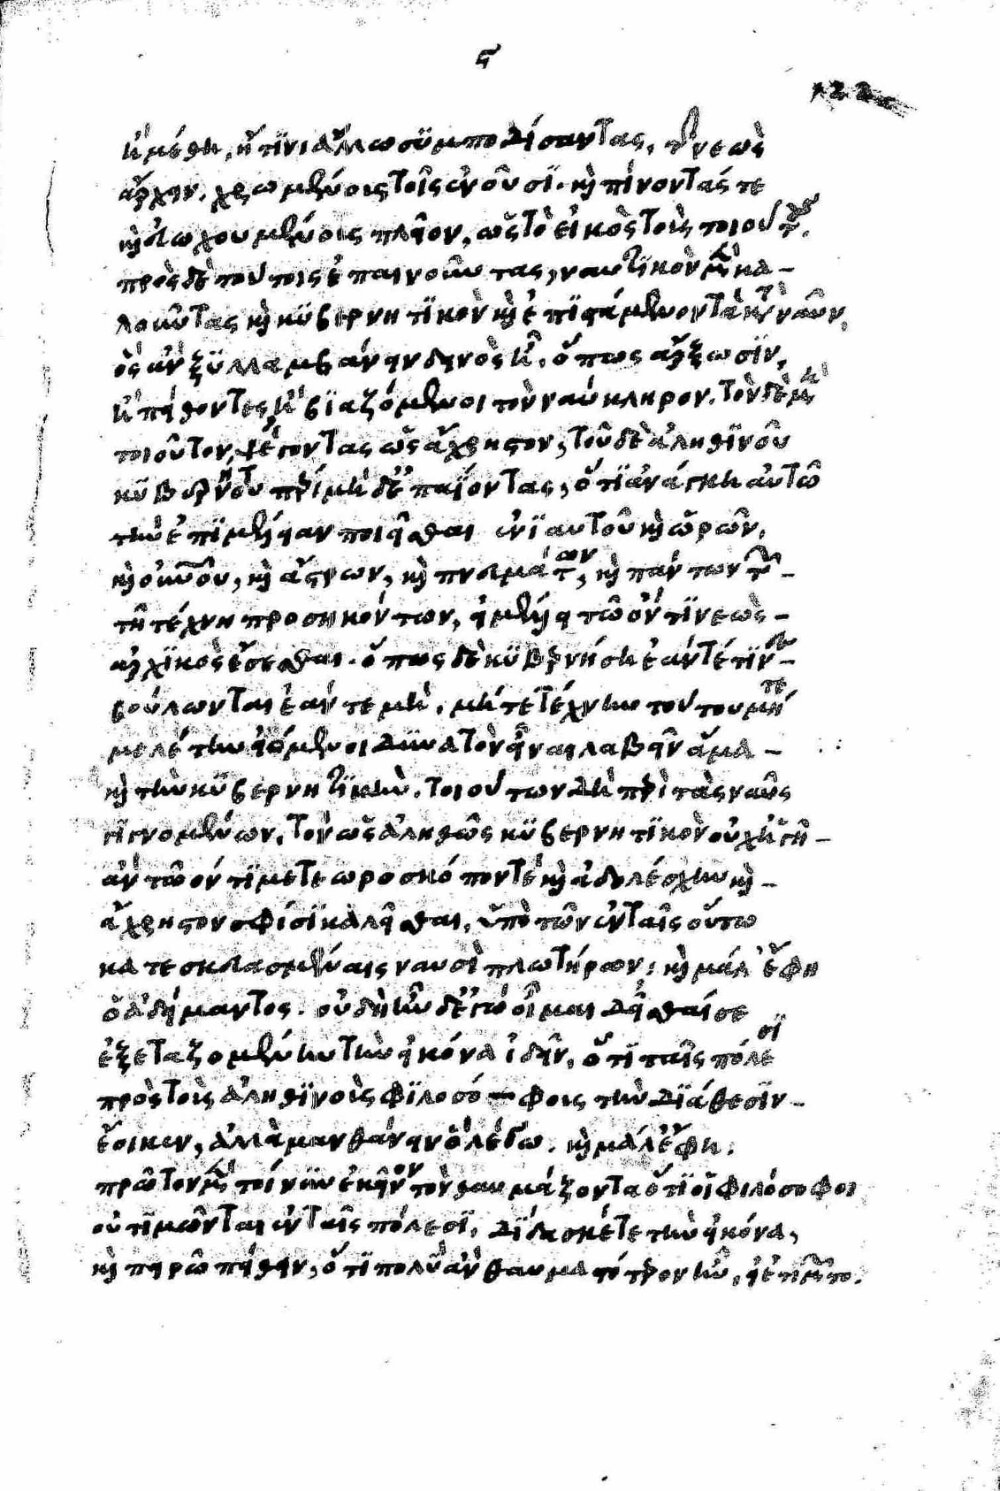 ς
122
ἢ μέθῃ, ἤ τινι ἄλλω συμποδίσαντας, τῆς νεὼς
ἄρχειν. χρωμένους τοῖς ἐνοῦσι. καὶ πίνοντάς τε
καὶ εὐωχουμένους πλεῖν, ὡς τὸ εἰκὸς τοὺς τοιούτους.
πρὸς δὲ τούτοις ἐπαινοῦντας, ναυτικὸν μὲν κα-
λοῦντας καὶ κυβερνητικὸν καὶ ἐπιστάμενον τὰ κατὰ ναῦν,
ὃς ἂν ξυλλαμβάνειν δεινὸς ᾖ, ὅπως ἄρξωσιν,
ἢ πείθοντες, ἢ βιαζόμενοι τὸν ναύκληρον. τὸν δὲ μὴ
τοιοῦτον, ψέγοντας ὡς ἄχρηστον, τοῦ δὲ ἀληθινοῦ
κυβερνήτου πέρι μηδ' ἐπαΐοντας, ὅτι ἀνάγκη αὐτῶ
τὴν ἐπιμέλειαν ποιεῖσθαι ἐνιαυτοῦ καὶ ὡρῶν,
καὶ οὐρανοῦ, καὶ ἄστρων, καὶ πνευμάτων, καὶ πάντων τῶν
τῆ τέχνη προσηκόντων, εἰ μέλλει τῶ ὄντι νεὼς
ἀρχικὸς ἔσεσθαι. ὅπως δὲ κυβερνήσει ἐάν τέ τινες
βούλωνται ἐάν τε μή, μήτε τέχνην τούτου μήτε
μελέτην οἰόμενοι δυνατὸν εἶναι λαβεῖν ἅμα
καὶ τὴν κυβερνητικήν. τοιούτων δὴ περὶ τὰς ναῦς
γιγνομένων, τὸν ὡς ἀληθῶς κυβερνητικὸν οὐχ ἡγῆ
ἂν τῶ ὄντι μετεωροσκόπον τε καὶ ἀδολέσχην καὶ
ἄχρηστον σφίσι καλεῖσθαι, ὑπὸ τῶν ἐν ταῖς οὕτω
κατεσκευασμέναις ναυσὶ πλωτήρων; καὶ μάλ' ἔφη
ὁ ἀδείμαντος. οὐ δὴ ἦν δ' ἐγὼ οἶμαι δεῖσθαί σε
ἐξεταζομένην τὴν εἰκόνα ἰδεῖν, ὅτι ταῖς πόλεσι
πρὸς τοὺς ἀληθινοὺς φιλοσό-φους τὴν διάθεσιν
ἔοικεν, ἀλλὰ μανθάνειν ὃ λέγω. καὶ μάλ' ἔφη.
πρῶτον μὲν τοίνυν ἐκεῖνον τὸν θαυμάζοντα ὅτι οἱ φιλόσοφοι
οὐ τιμῶνται ἐν ταῖς πόλεσι, δίδασκέ τε τὴν εἰκόνα,
καὶ πειρῶ πείθειν, ὅτι πολὺ ἂν θαυμαστότερον ἦν, εἰ ἐτιμῶντο.